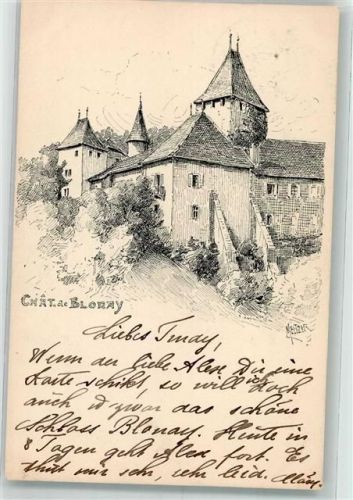 CHÂT. de BLONAY
Liebes Trudy,
Wenn der liebe Alex Dir eine
Karte schikt, so will ich doch
auch u zwar das schöne
Schloss Blonay. Heute in
8 Tagen geht Alex fort. Es
thut mir sehr, sehr leid.